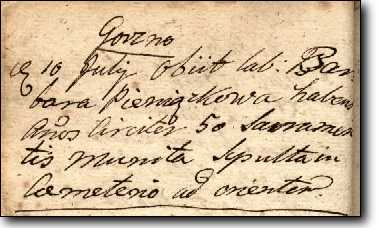 Govzno
10 July Obiit lab: Bar
bara Pieniązkowa habens
Annos Circiter 50 Sacramen
tis munita Sepulta in
Cœmeterio ad orientem.